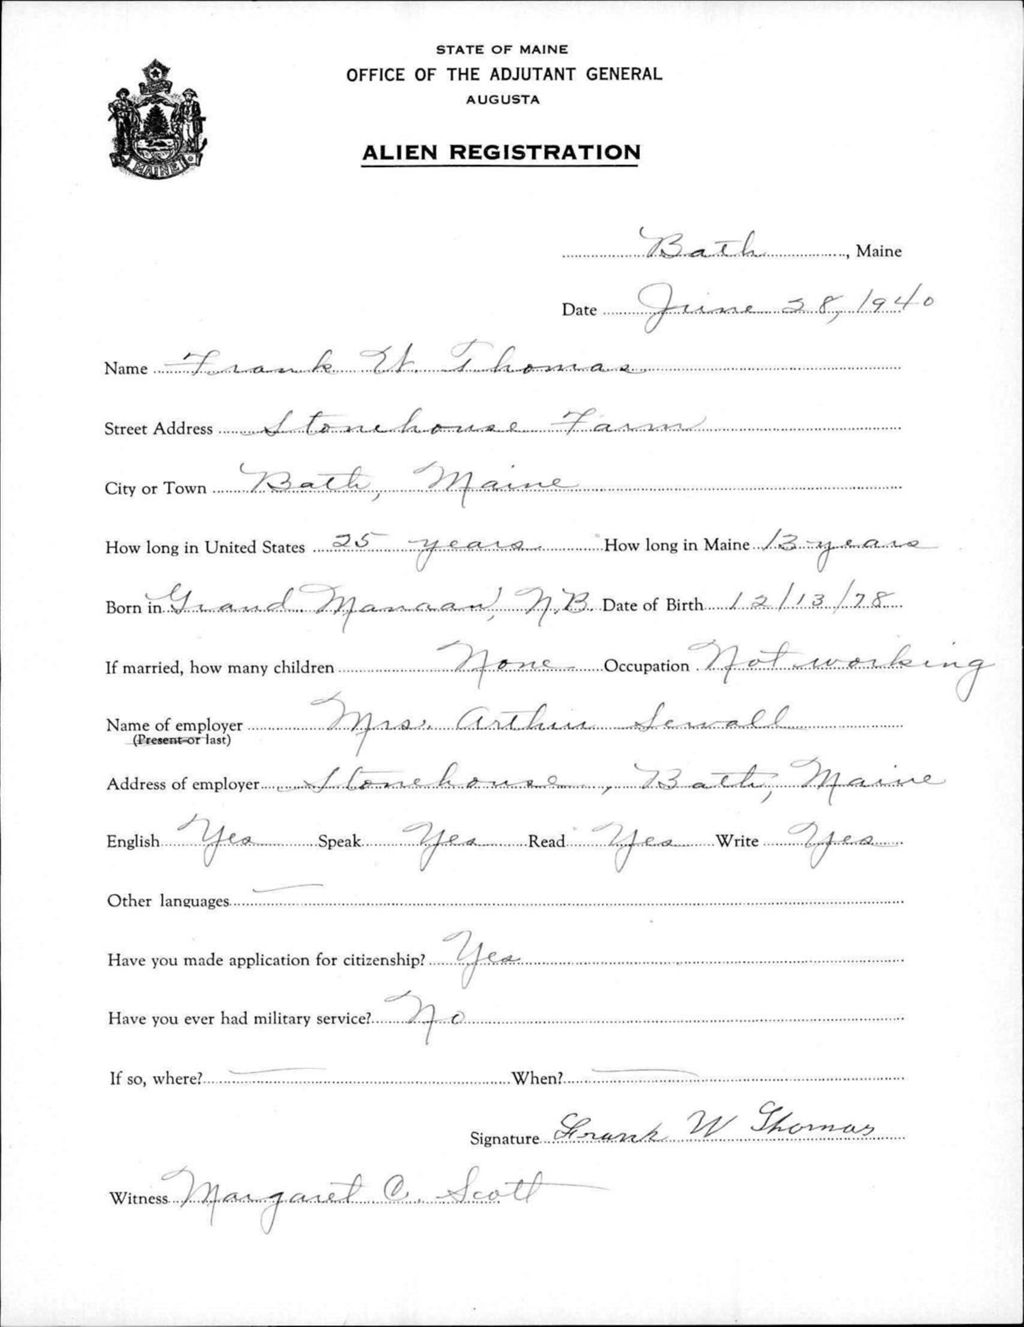 STATE OF MAINE
OFFICE OF THE ADJUTANT GENERAL
AUGUSTA
ALIEN REGISTRATION
MAINE
Bath, Maine
Date June 28, 1940
Name Frank W. Thomas
Street Address Stonehouse Farm
City or Town Bath, Maine
How long in United States 25 years How long in Maine 13 years
Born in Grand Manaan, N.B. Date of Birth 12/13/78
If married, how many children None Occupation Not working
Name of employer Mrs. Arthur Sewall
(Present or last)
Address of employer Stonehouse, Bath, Maine
English Yes Speak Yes Read Yes Write Yes
Other languages —
Have you made application for citizenship? Yes
Have you ever had military service? No
If so, where? — When? —
Signature Frank W Thomas
Witness Margaret C. Scott